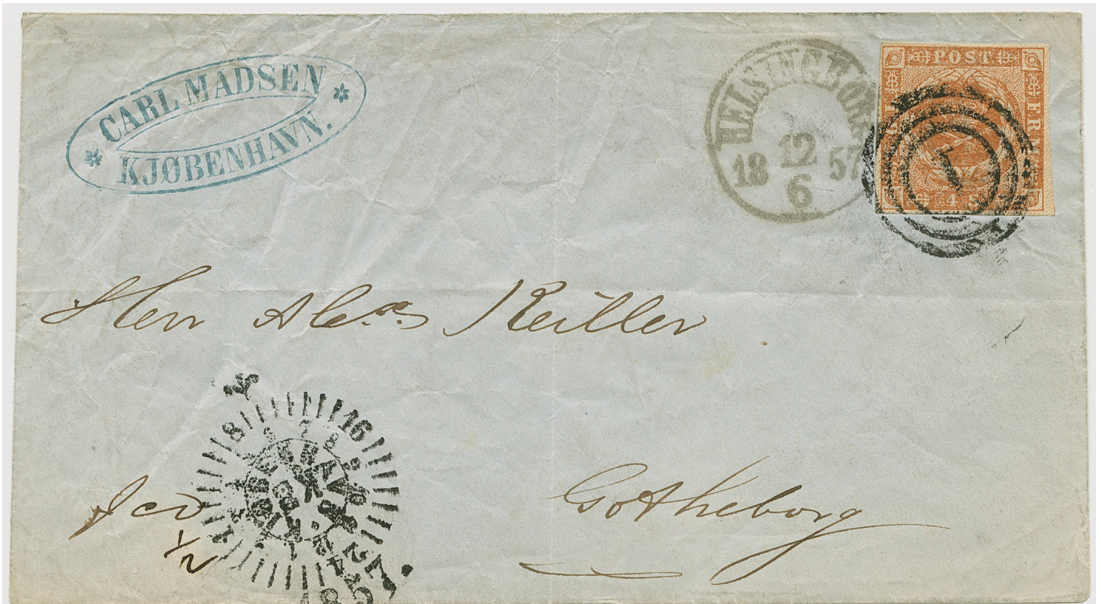 CARL MADSEN
KJØBENHAVN.
HELSINGBORG
12
18 57
6
POST
FR
4
1
Herr Alex. Keiller
Gotheborg
1/2
1857